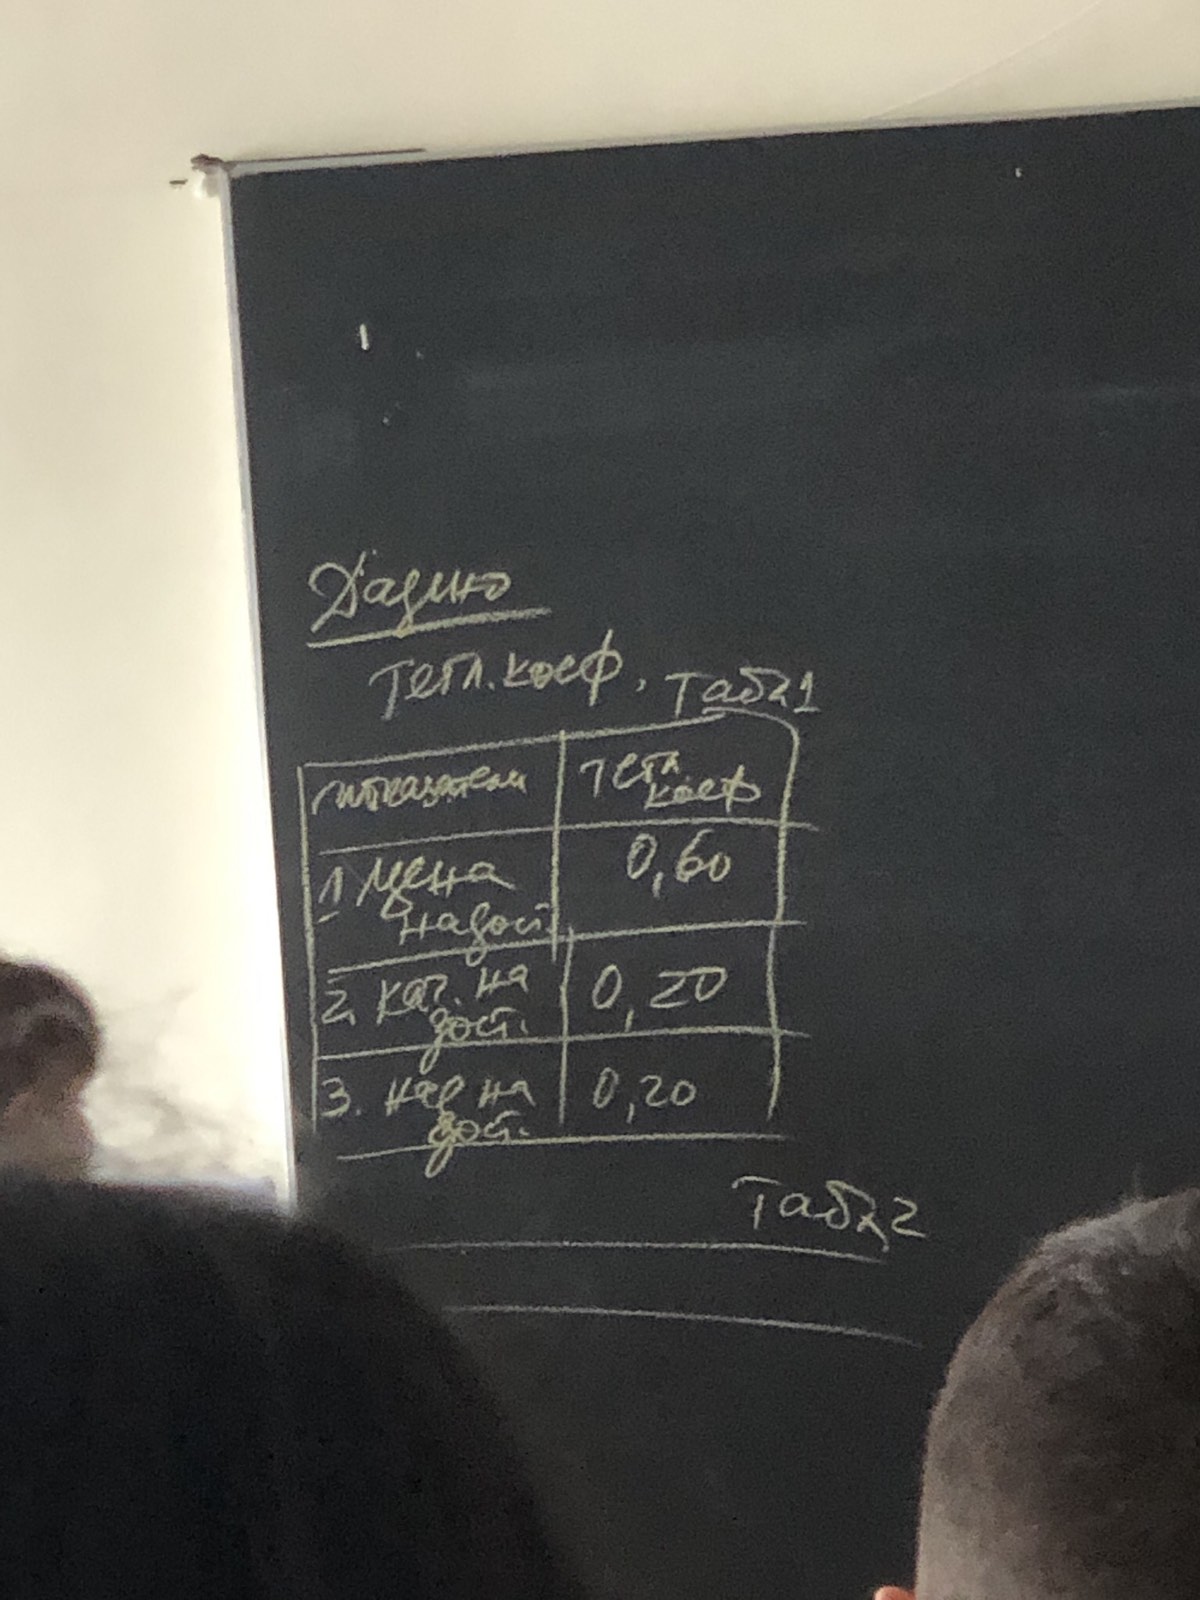 Дадено
Тегл. коеф. Табл 1
показатели Тегл коеф
1. Цена на дост. 0,60
2. кач. на дост. 0,20
3. над на дост. 0,20
Табл 2